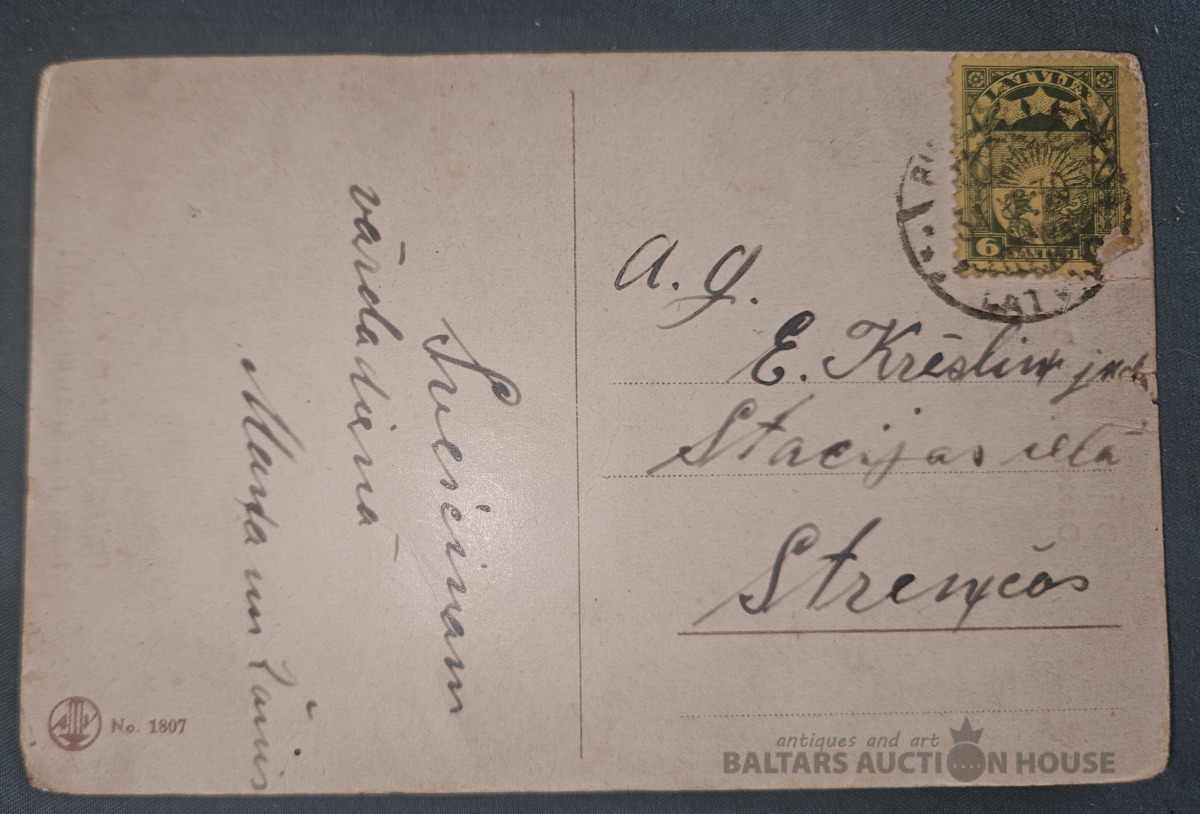 Sveicinam
vārdadienā
Marta un Jānis
No. 1807
LATVIJA
6 SANTIMI
LATV
A. g.
E. Krēsliņ
Stacijas ielā
Strenčos
antiques and art
BALTARS AUCTION HOUSE